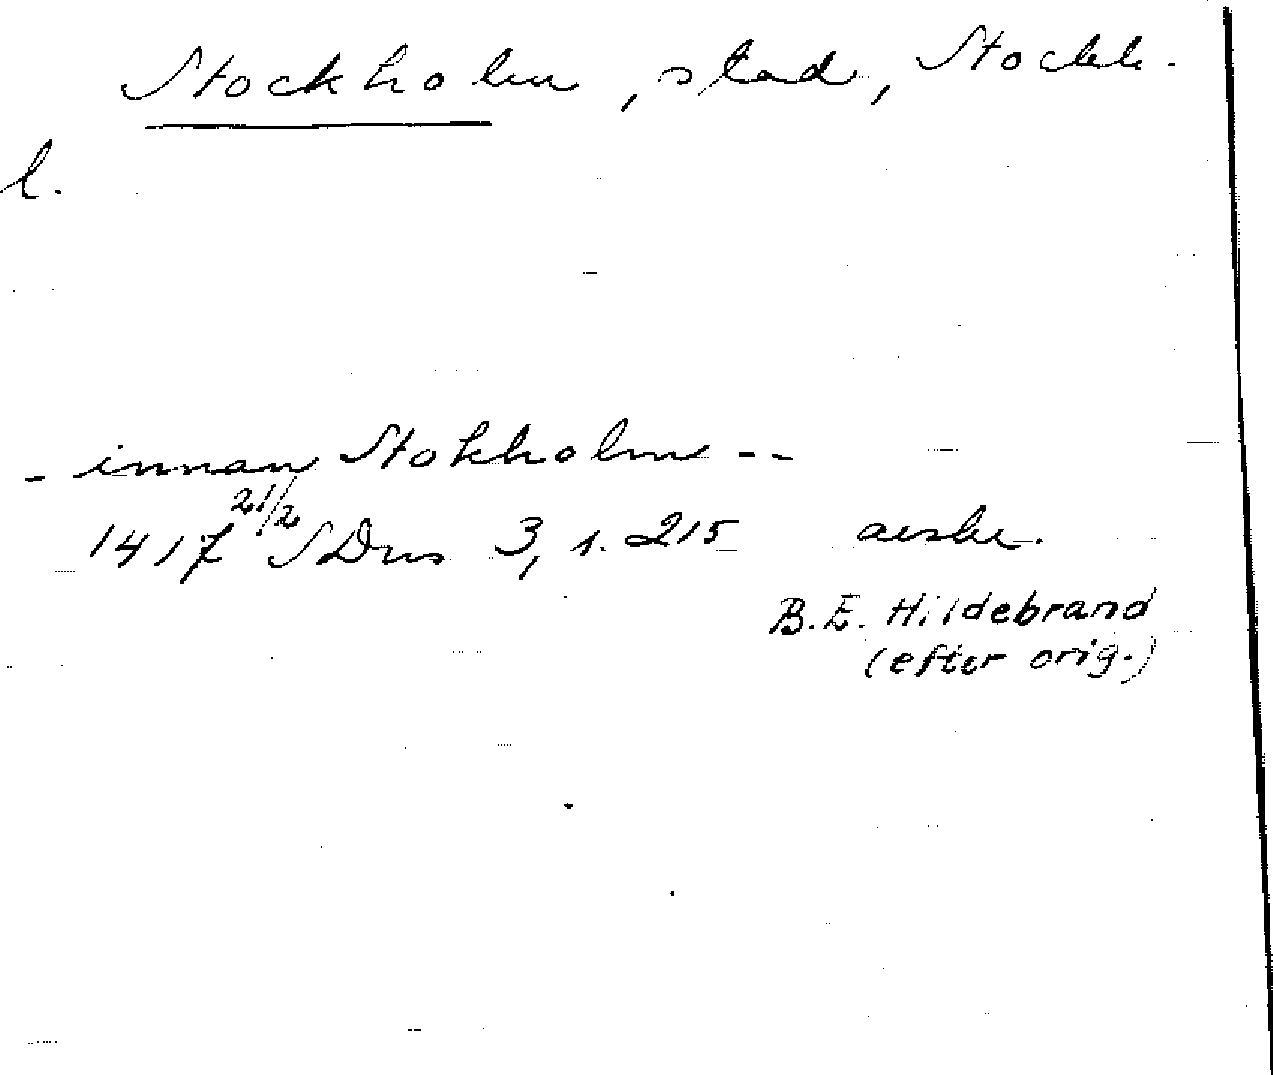 Stockholm, stad, Stockh.
l.
- innan Stokholm --
1417 21/2 SDns 3, s. 215 avskr.
B.E. Hildebrand
(efter orig.)